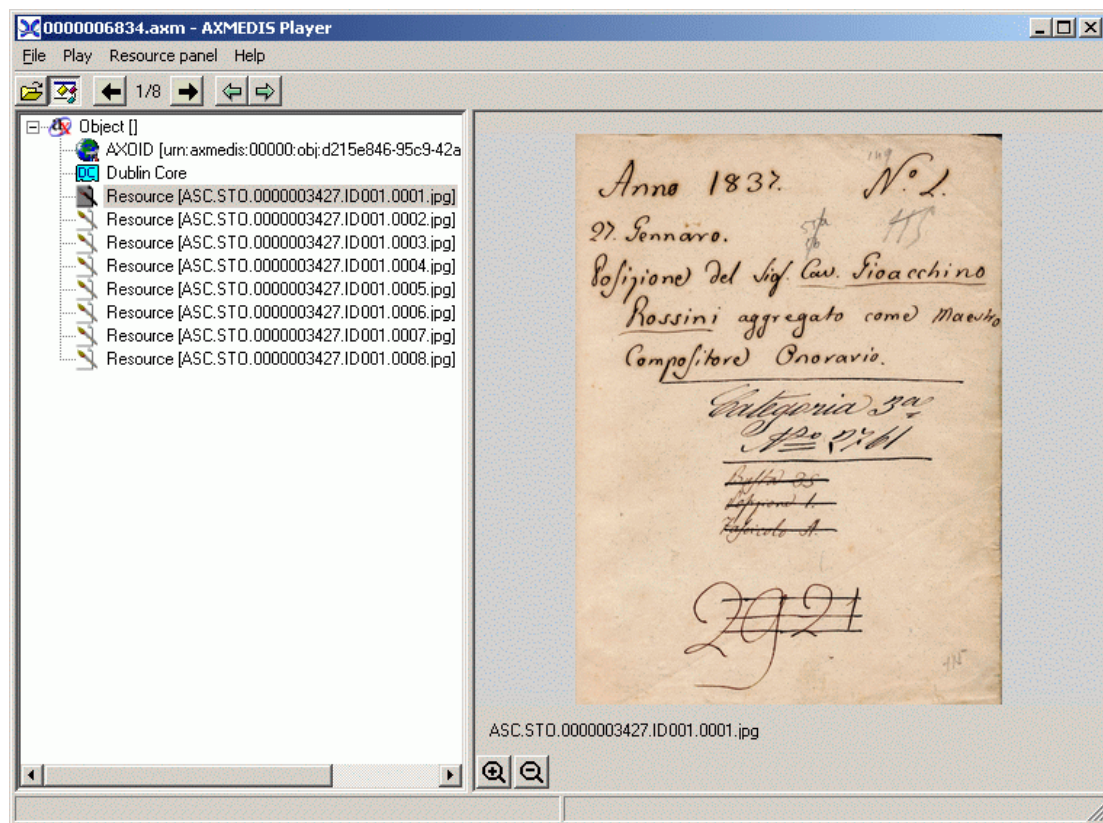 0000006834.axm - AXMEDIS Player
File Play Resource panel Help
1/8
Object []
AXOID [urn:axmedis:00000:obj:d215e846-95c9-42a
DC Dublin Core
Resource [ASC.STO.0000003427.ID001.0001.jpg]
Resource [ASC.STO.0000003427.ID001.0002.jpg]
Resource [ASC.STO.0000003427.ID001.0003.jpg]
Resource [ASC.STO.0000003427.ID001.0004.jpg]
Resource [ASC.STO.0000003427.ID001.0005.jpg]
Resource [ASC.STO.0000003427.ID001.0006.jpg]
Resource [ASC.STO.0000003427.ID001.0007.jpg]
Resource [ASC.STO.0000003427.ID001.0008.jpg]
149
Anno 1837. N.º 2.
27. Gennaro.
Posizione del Sig. Cav. Gioacchino
Rossini aggregato come Maestro
Compositore Onorario.
Categoria 3a
No 2761
Busta 35
Posizione 1.
Fascicolo A.
2921
ASC.STO.0000003427.ID001.0001.jpg